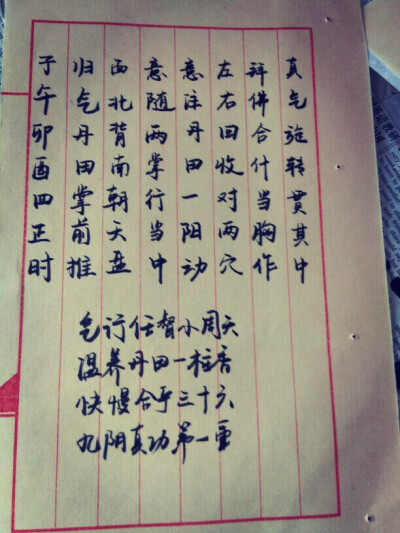 子午卯酉四正时
归气丹田掌前推
面北背南朝天盘
意随两掌行当中
意注丹田一阳动
左右回收对两穴
拜佛合什当胸作
真气旋转贯其中
气行任督小周天
温养丹田一柱香
快慢合乎三十六
九阴真功第一重